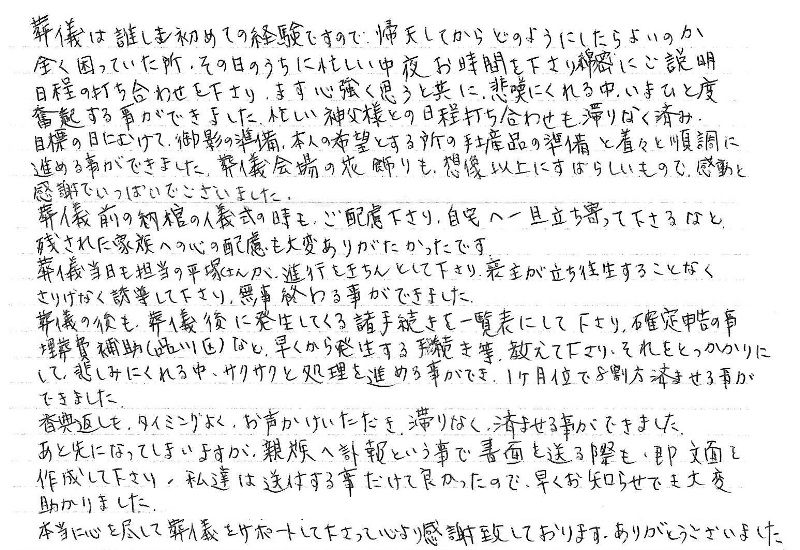 葬儀は誰しも初めての経験ですので、帰天してからどのようにしたらよいのか
全く困っていた所、その日のうちに忙しい中夜お時間を下さり綿密にご説明
日程の打ち合わせを下さり、まず心強く思うと共に、悲嘆にくれる中、いまひと度
奮起する事ができました。忙しい神父様との日程打ち合わせも滞りなく済み、
目標の日にむけて、御影の準備、本人の希望とする所の手土産品の準備と着々と順調に
進める事ができました。葬儀会場の花飾りも、想像以上にすばらしいもので、感動と
感謝でいっぱいでございました。
葬儀前の納棺の儀式の時も、ご配慮下さり、自宅へ一旦立ち寄って下さるなど、
残された家族への心の配慮も大変ありがたかったです。
葬儀当日も担当の平塚さんが、進行をきちんとして下さり、喪主が立ち往生することなく
さりげなく誘導して下さり、無事終わる事ができました。
葬儀の後も、葬儀後に発生してくる諸手続きを一覧表にして下さり、確定申告の事
埋葬費補助(品川区)など、早くから発生する手続き等、教えて下さり、それをとっかかりに
して、悲しみにくれる中、サクサクと処理を進める事ができ、1ヶ月位で8割方済ませる事が
できました。
香典返しも、タイミングよく、お声かけいただき、滞りなく、済ませる事ができました。
あと先になってしまいますが、親族へ訃報という事で書面を送る際も、即文面を
作成して下さり、私達は送付する事だけで良かったので、早くお知らせでき大変
助かりました。
本当に心を尽して葬儀をサポートして下さって心より感謝致しております。ありがとうございました